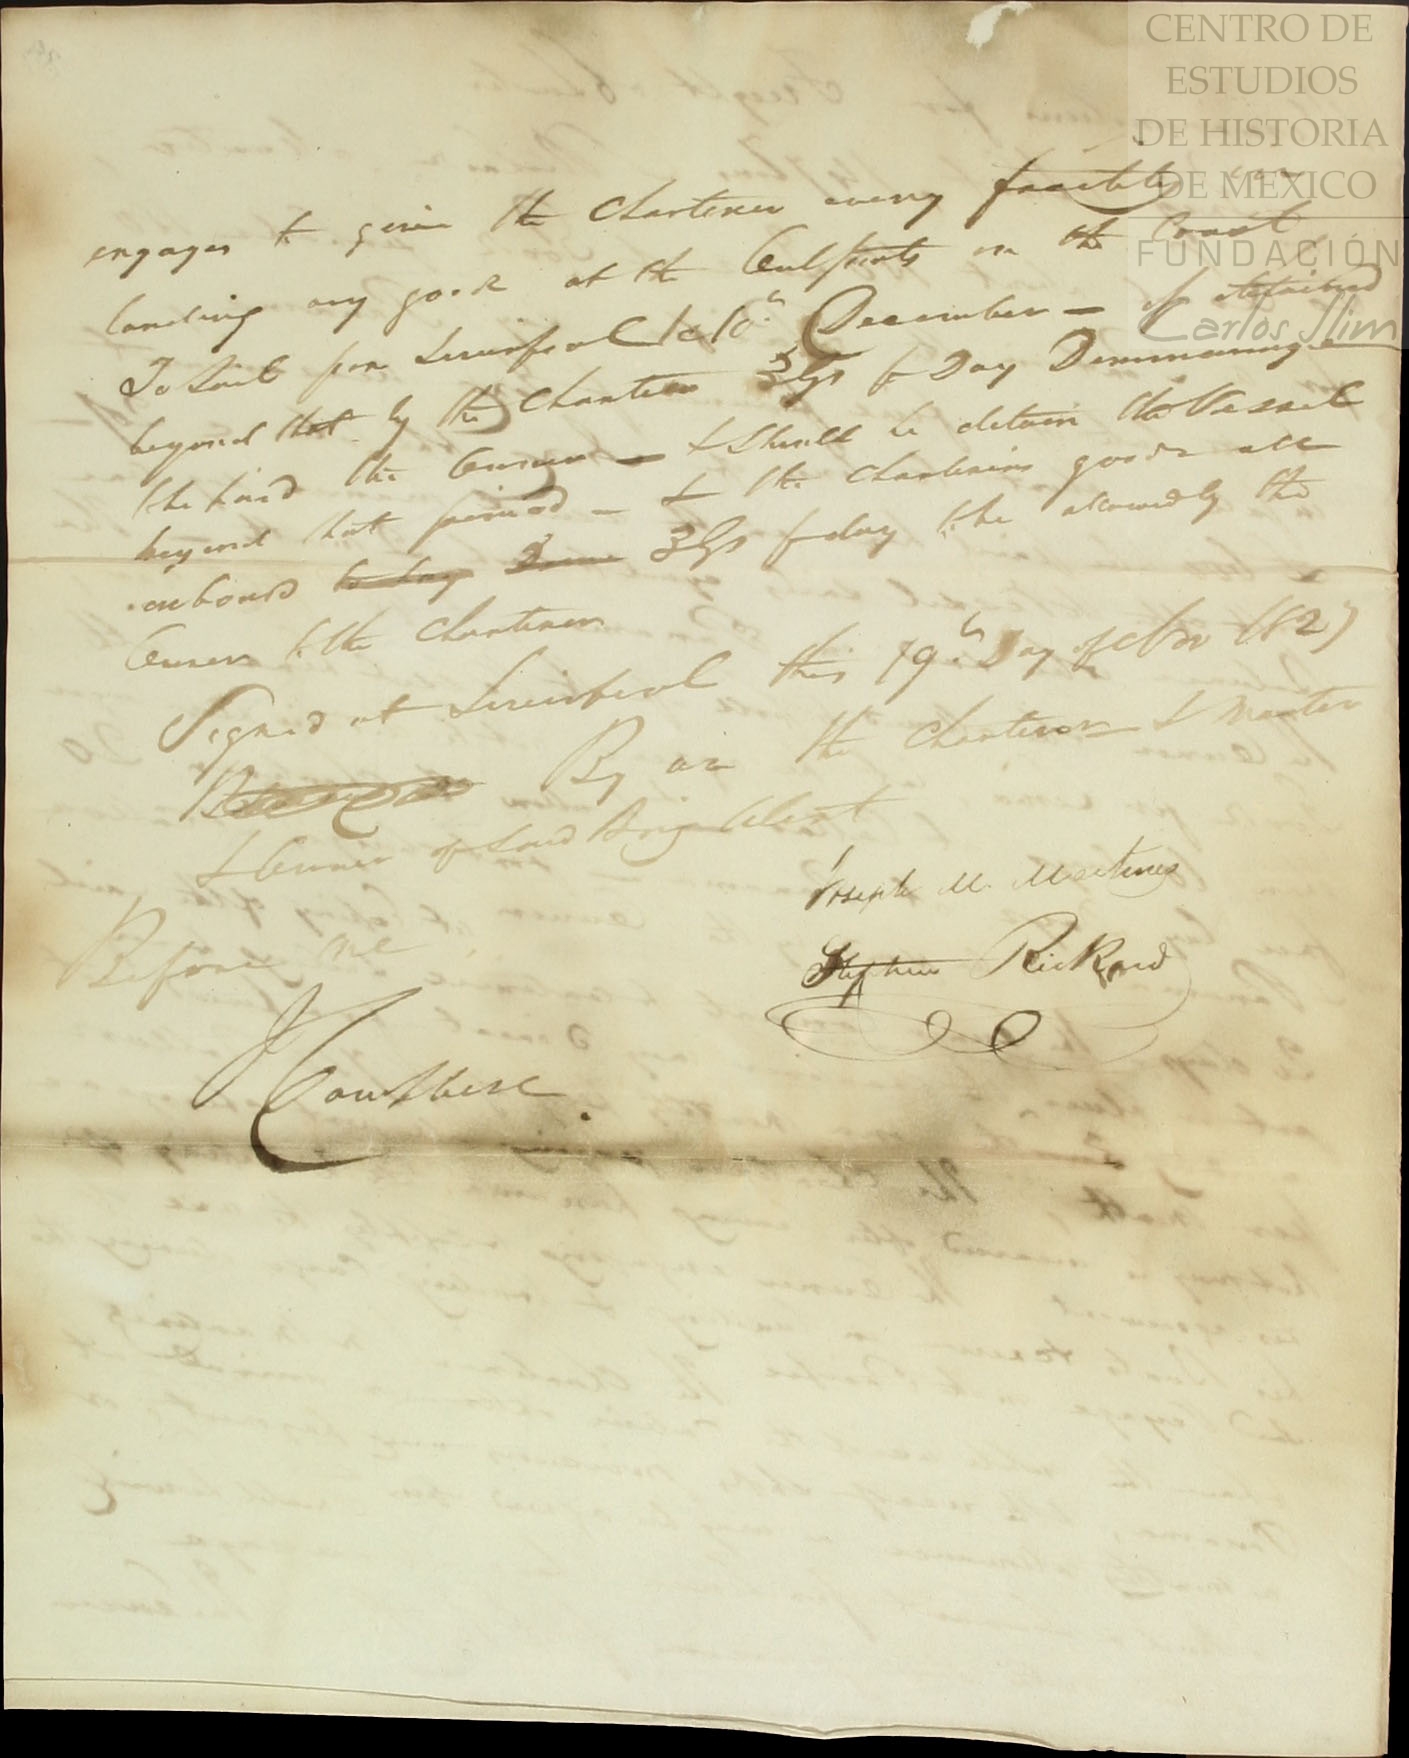 CENTRO DE
ESTUDIOS
DE HISTORIA
DE MEXICO
FUNDACIÓN
Carlos Slim
engages to give the Charterer every facility in
landing any goods at the Outports on the Coast
To Sail from Liverpool 10th December – if detained
beyond that by the Charterer 3Gs p Day Demmurrage
the paid the Owner – & Should he detain the Vessel
beyond that period – & the Charterers goods all
onboard 3Gs p day to be allowed by the
Owner to the Charterer
Signed at Liverpool this 19th Day of Nov 1827
By us the Charterer & Master
& Owner of Said Brig
Before me
Joseph M. Martinez
Stephen Rickard